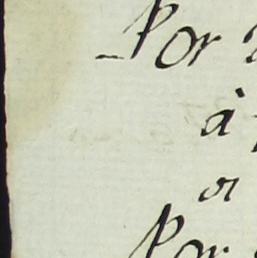 Por
á
or
Por